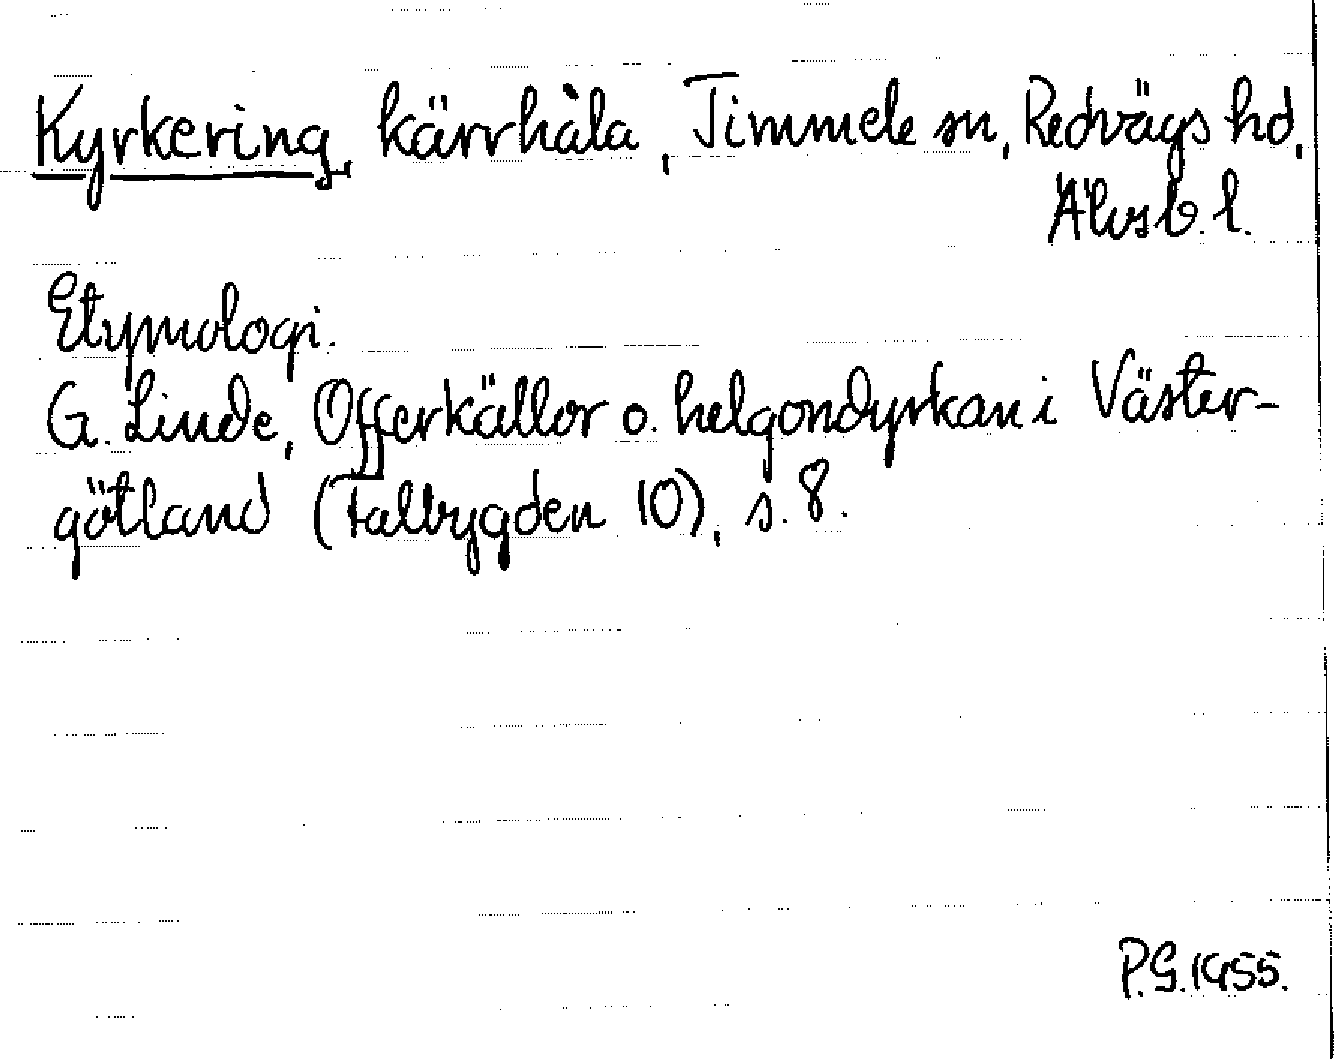 Kyrkering, kärrhåla, Timmele sn, Redvägs hd,
Älvsb. l.
Etymologi.
G. Linde, Offerkällor o. helgondyrkan i Väster-
götland (Falbygden 10), s. 8.
P.G. 1955.